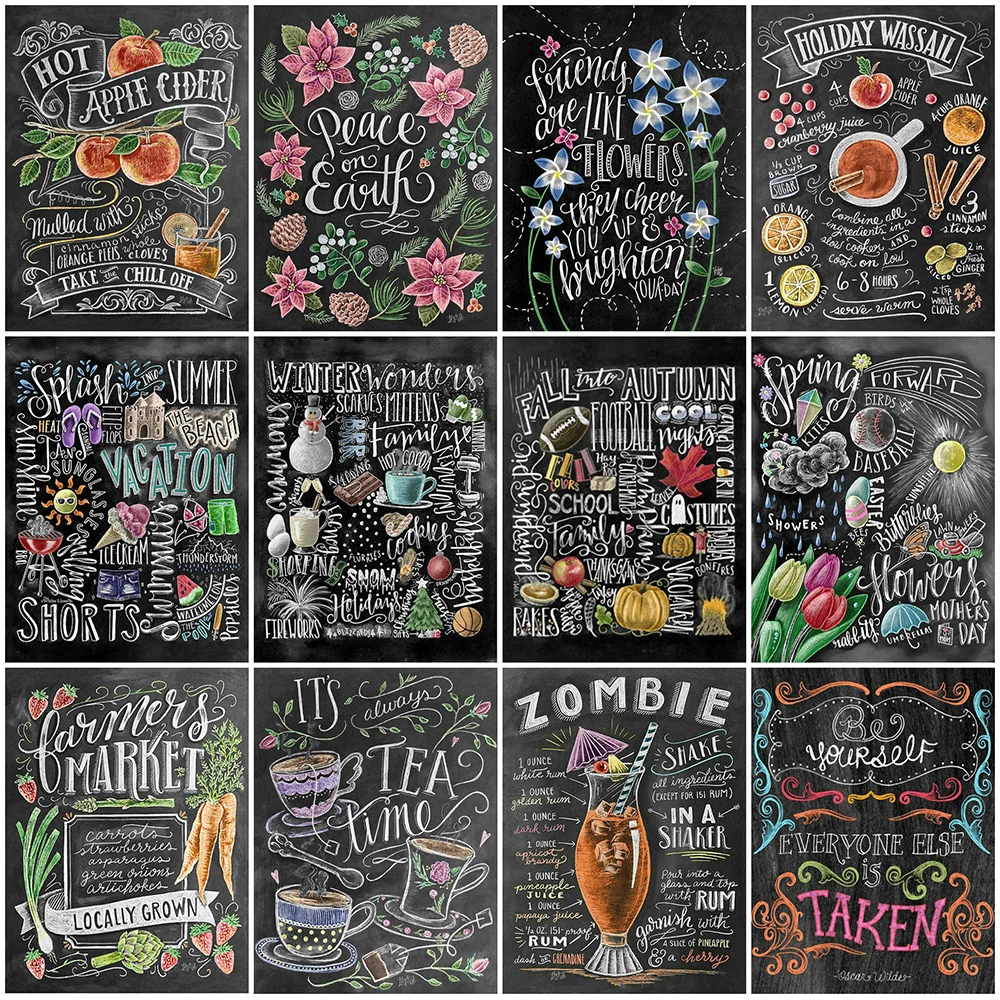 HOT
APPLE CIDER
Mulled with
cinnamon sticks
ORANGE PEELS, whole
CLOVES
TAKE the CHILL OFF
Peace
on
Earth
friends
are LIKE
FLOWERS,
they cheer
YOU UP &
brighten
YOUR DAY
HOLIDAY WASSAIL
4 CUPS
APPLE CIDER
4 CUPS
cranberry juice
4 CUPS ORANGE
JUICE
BROWN
SUGAR
1 ORANGE
(SLICED)
Combine all
ingredients in a
slow cooker, AND
cook on low
6-8 HOURS
3
CINNAMON
sticks
SLICED
fresh
GINGER
1 LEMON (SLICED)
2 tsp
WHOLE
CLOVES
serve warm
Splash INTO SUMMER
HEAT
FLIP
FLOPS
THE BEACH
Sunshine
SUNGLASSES
VACATION
BBQ
ICE CREAM
THUNDERSTORM
WATERMELON
Popsicles
SHORTS
POOL
WINTER Wonders
SCARVES MITTENS
BRRR
Family
HOT COCOA
SLEDDING
cookies
SHOPPING
FLURRIES
SNOW
Holidays
FIREWORKS
BLIZZARDS
GIFTS
Basketball
FALL into AUTUMN
FOOTBALL
COOL
nights
CANDY CORN
Hay
COLORS
SCHOOL
LEAVES
Pumpkins
COSTUMES
Family
THANKSGIVING
BONFIRES
RAKES
Spring FORWARD
KITES
BIRDS
BASEBALL
SUNSHINE
SHOWERS
EASTER
BEES
Butterflies
LAWN MOWERS
flowers
MOTHERS
DAY
rabbits
UMBRELLAS
farmers
MARKET
carrots
strawberries
asparagus
green onions
artichokes
LOCALLY GROWN
IT'S always
TEA
time
ZOMBIE
1 OUNCE
white rum
1 OUNCE
golden rum
1 OUNCE
dark rum
1 OUNCE
apricot
brandy
1 OUNCE
pineapple
JUICE
1 OUNCE
papaya juice
1/2 OZ. 151-proof
RUM
dash OF GRENADINE
SHAKE
all ingredients
(EXCEPT FOR 151 RUM)
IN A
SHAKER
Pour into a
glass and top
with RUM
garnish with
A SLICE OF PINEAPPLE
& a cherry
Be
yourself
EVERYONE ELSE
is
TAKEN
-Oscar Wilde-